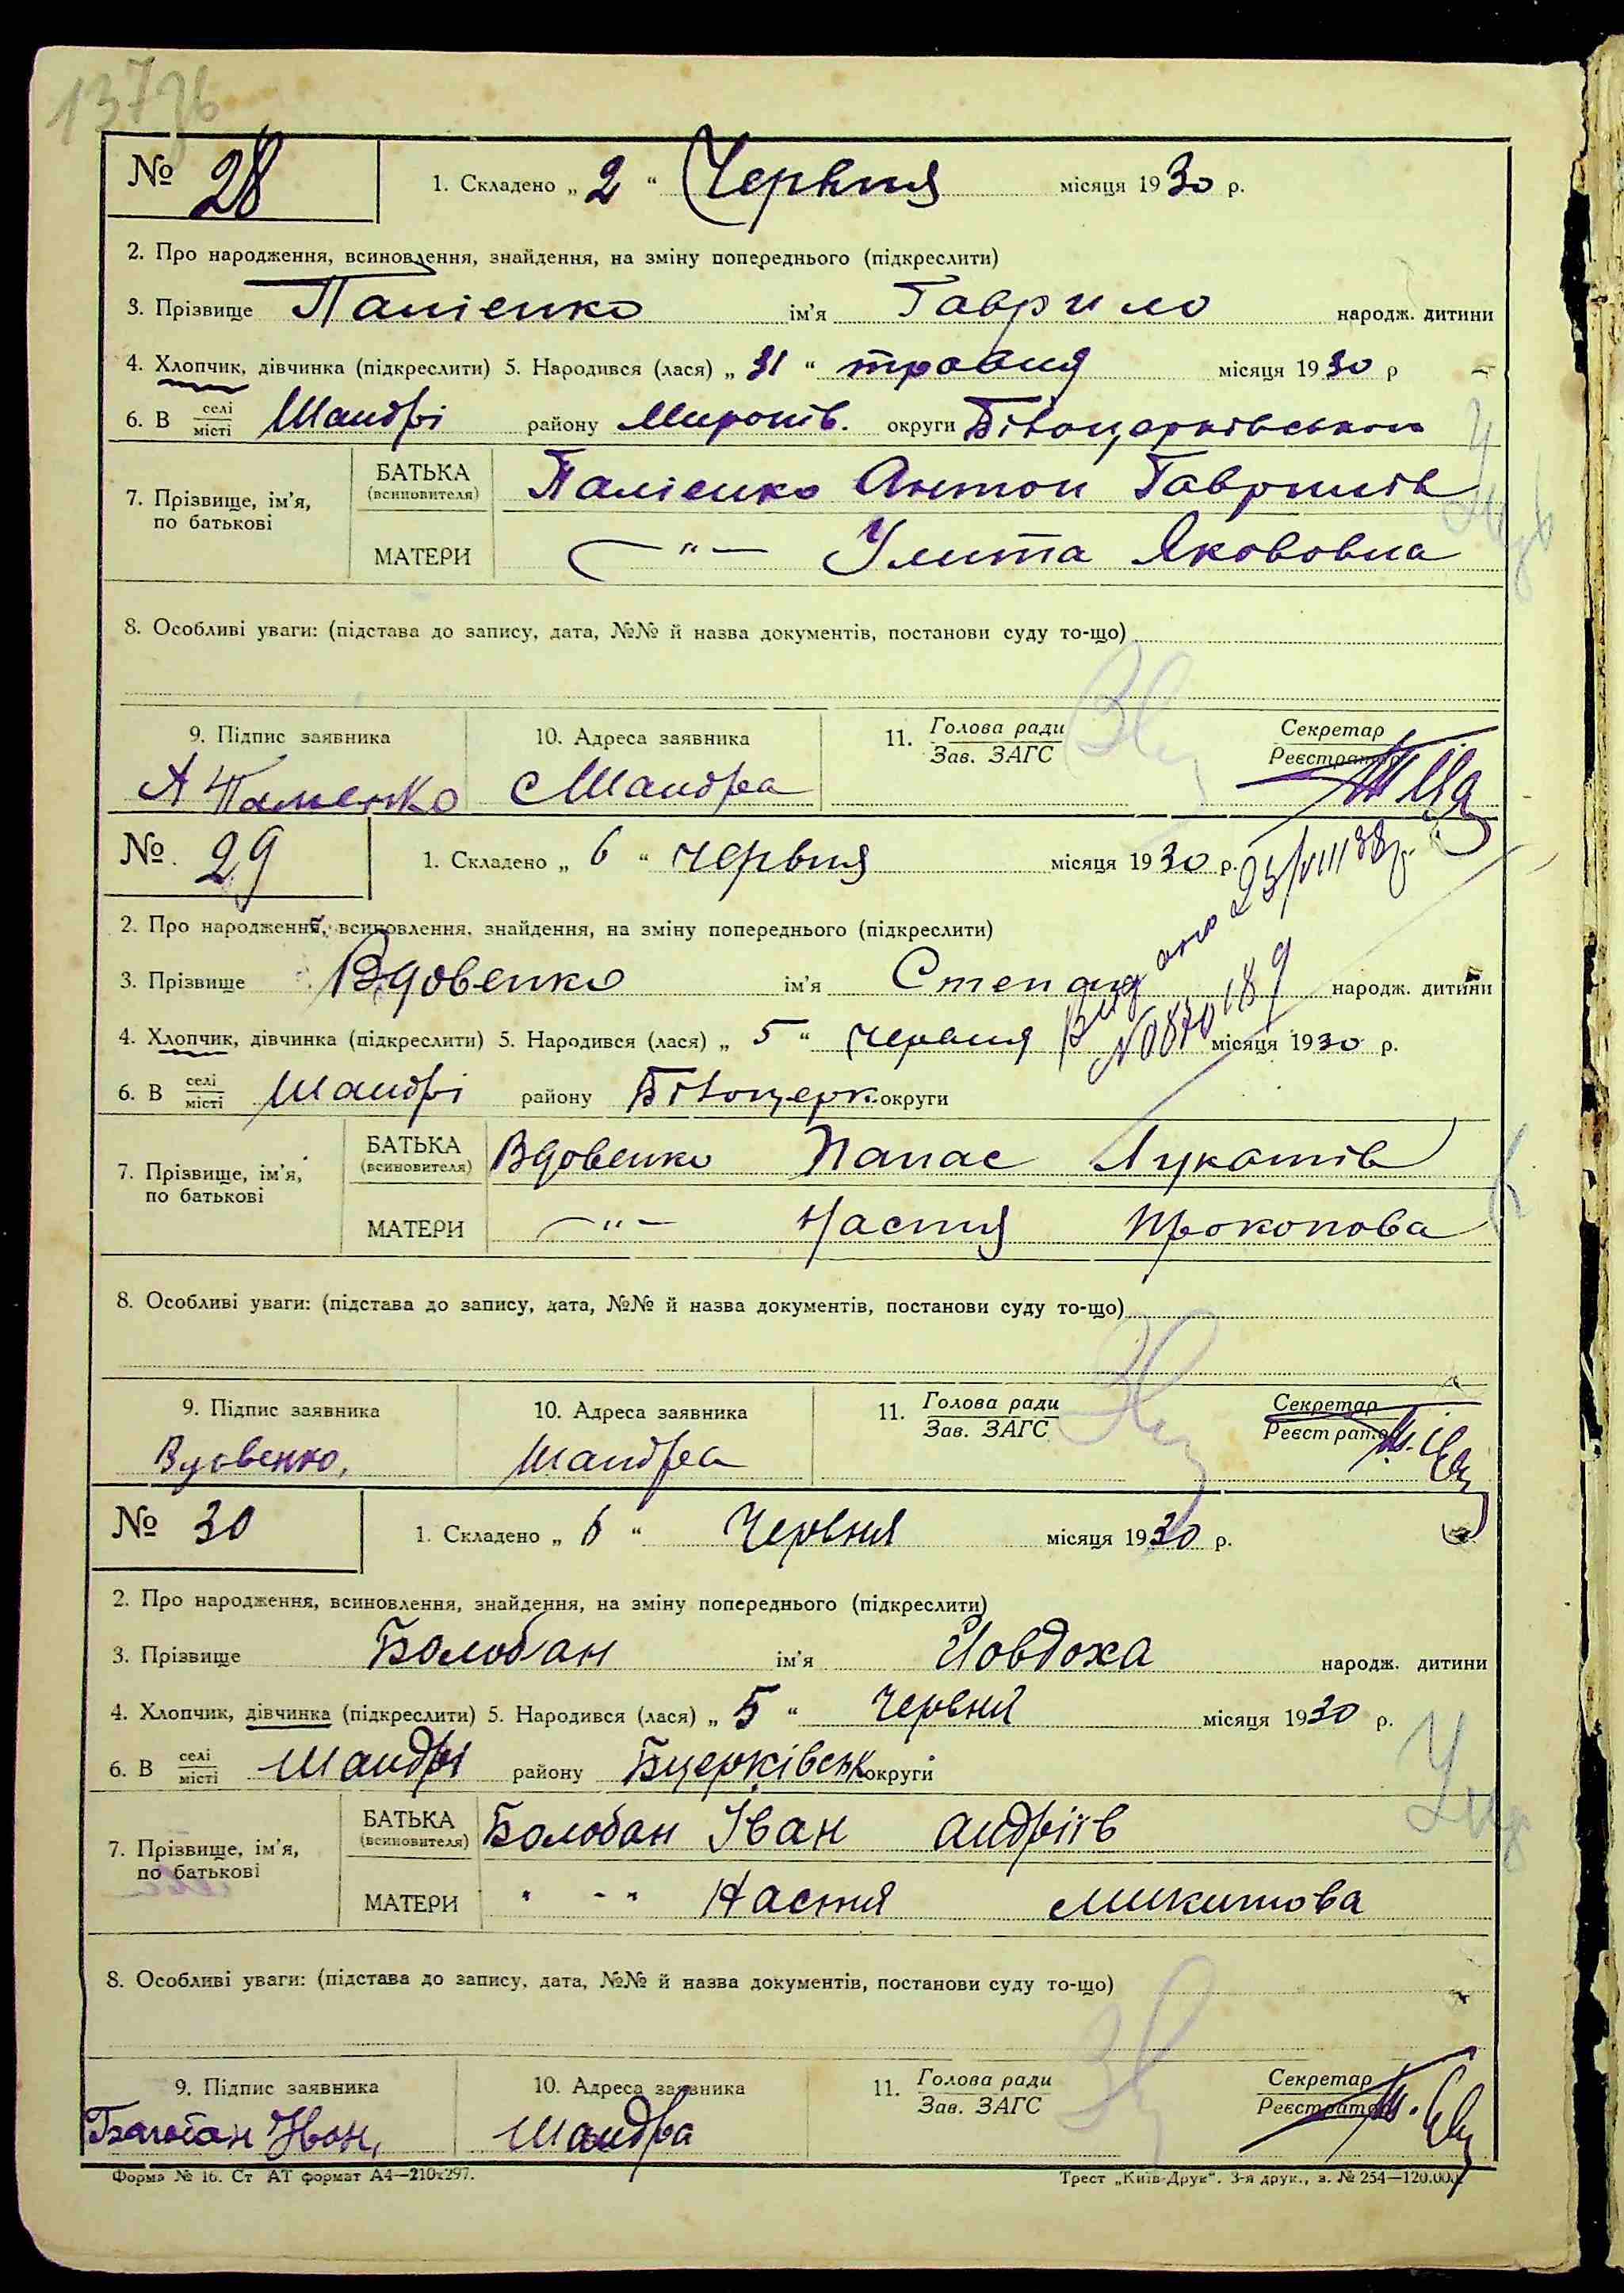 137зв
№ 28
1. Складено „ 2 “ Червня місяця 1930 р.
2. Про народження, всиновлення, знайдення, на зміну попереднього (підкреслити)
3. Прізвище Палієнко ім'я Гаврило народж. дитини
4. Хлопчик, дівчинка (підкреслити) 5. Народився (лася) „ 31 “ травня місяця 1930 р
6. В селі місті Шандрі району Миронів. округи Білоцерківськои
7. Прізвище, ім'я, по батькові БАТЬКА (всиновителя) Палієнко Антон Гаврилів
МАТЕРИ — " — Улита Якововна
8. Особливі уваги: (підстава до запису, дата, №№ й назва документів, постанови суду то-що)
9. Підпис заявника 10. Адреса заявника 11. Голова ради Зав. ЗАГС Секретар Реєстратор
А Палиенко с Шандра
№ 29
1. Складено „ 6 “ червня місяця 1930 р.
2. Про народження, всиновлення, знайдення, на зміну попереднього (підкреслити)
3. Прізвище Вдовенко ім'я Степан народж. дитини
Видано 23/VIII 38р.
№ 0870189
4. Хлопчик, дівчинка (підкреслити) 5. Народився (лася) „ 5 “ червня місяця 1930 р.
6. В селі місті Шандрі району Білоцерк. округи
7. Прізвище, ім'я, по батькові БАТЬКА (всиновителя) Вдовенко Панас Лукашів
МАТЕРИ — " — Настя Прокопова
8. Особливі уваги: (підстава до запису, дата, №№ й назва документів, постанови суду то-що)
9. Підпис заявника 10. Адреса заявника 11. Голова ради Зав. ЗАГС Секретар Реєстратор
Вдовенко, Шандра
№ 30
1. Складено „ 6 “ Червня місяця 1930 р.
2. Про народження, всиновлення, знайдення, на зміну попереднього (підкреслити)
3. Прізвище Болобан ім'я Йовдоха народж. дитини
4. Хлопчик, дівчинка (підкреслити) 5. Народився (лася) „ 5 “ Червня місяця 1930 р.
6. В селі місті Шандрі району Бцерківськ округи
7. Прізвище, ім'я, по батькові БАТЬКА (всиновителя) Болобан Іван Андріїв
МАТЕРИ " - " Настя Микитова
8. Особливі уваги: (підстава до запису, дата, №№ й назва документів, постанови суду то-що)
9. Підпис заявника 10. Адреса заявника 11. Голова ради Зав. ЗАГС Секретар Реєстратор
Балобан Иван, Шандра
Форма № 16. Ст АТ формат А4—210x297. Трест „Київ-Друк“. 3-я друк., з. № 254—120.000.